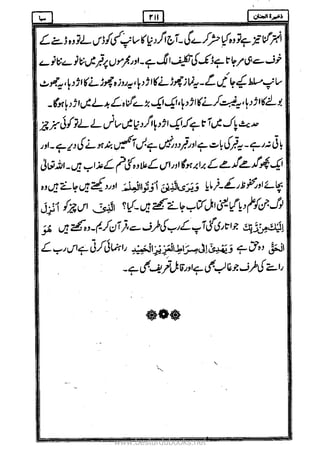 ذخیرۃ الجنان ۲۱۱ سبا
انہتر گنا تیز ہے تو وہ کیا حشر کرے گی۔ آج اگر دنیا کا سانپ کسی کو ڈس لے تو وہ ڈسنے کے
خوف سے ہی مر جاتا ہے ڈنک کی تکلیف الگ ہے۔ اور مجرموں پر قبر میں ننانوے ننانوے
سانپ مسلط کیے جائیں گے۔ یہ نماز چھوڑنے کا اژدہا، یہ روزہ چھوڑنے کا اژدہا، یہ جھوٹ
بولنے کا اژدہا، یہ غیبت کرنے کا اژدہا، ایک ایک بڑے گناہ کے بدلے میں اژدہا ہوگا۔
حدیث پاک میں آتا ہے کہ ایک اژدہا اگر دنیا میں سانس لے لے تو کوئی سبز چیز
باقی نہ رہے۔ یہ قبر کی بات ہے اور قبر دور نہیں ہے بس آنکھیں بند ہونے کی دیر ہے۔ اور
ایک بچھو گدھے گدھے کے برابر ہوگا اور اس کے علاوہ کئی قسم کے عذاب ہیں۔ اللہ تعالیٰ
بچائے اور محفوظ رکھے۔ فرمایا وَيَرَى الَّذِيْنَ اُوْتُوا الْعِلْمَ اور دیکھتے ہیں جانتے ہیں وہ
لوگ جن کو علم دیا گیا یعنی اہل کتاب جانتے سمجھتے ہیں۔ کیا؟ الَّذِیْٓ اس چیز کو اُنْزِلَ
اِلَيْكَ مِنْ رَّبِّكَ جو اتاری گئی آپ کے رب کی طرف سے، قرآن کریم۔ وہ سمجھتے ہیں هُوَ
الْحَقَّ وہ حق ہے وَيَهْدِيْٓ اِلٰى صِرَاطِ الْعَزِيْزِ الْحَمِيْدِ راہنمائی کرتی ہے اس رب کے
راستے کی طرف جو غالب بھی ہے اور قابل تعریف بھی ہے۔
www.besturdubooks.net